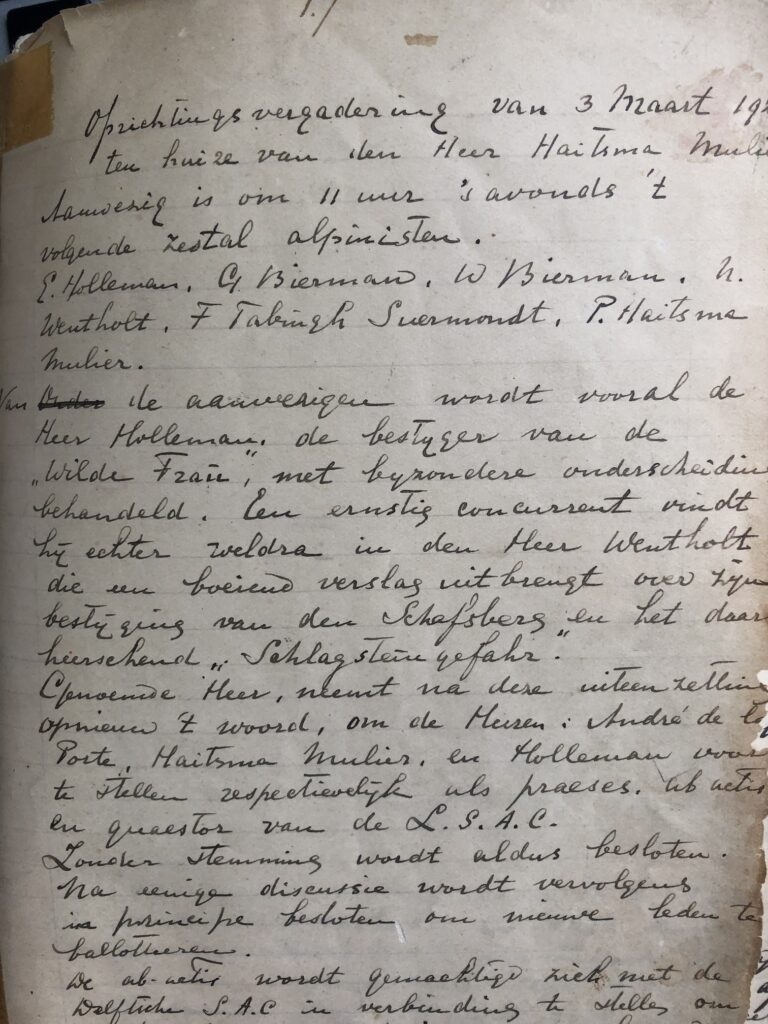 1.)
Oprichtingsvergadering van 3 Maart 192
ten huize van den Heer Haitsma Mulie
Aanwezig is om 11 uur 's avonds 't
volgende zestal alpinisten.
E. Holleman, G Bierman, W Bierman, N.
Wentholt, F Tabingh Suermondt, P. Haitsma
Mulier.
Van de aanwezigen wordt vooral de
Heer Holleman, de bestijger van de
„Wilde Frau", met byzondere onderscheidin
behandeld. Een ernstig concurrent vindt
hij echter weldra in den Heer Wentholt
die een boeiend verslag uitbrengt over zijn
bestijging van den Schafsberg en het daar
heerschend „Schlagsteingefahr".
Genoemde Heer, neemt na deze uiteenzettin
opnieuw 't woord, om de Heeren: André de la
Porte, Haitsma Mulier, en Holleman voor
te stellen respectievelijk als praeses, ab actis
en quaestor van de L.S.A.C.
Zonder stemming wordt aldus besloten.
Na eenige discussie wordt vervolgens
in principe besloten om nieuwe leden te
ballotteeren.
De ab-actis wordt gemachtigd zich met de
Delftsche S.A.C in verbinding te stellen om